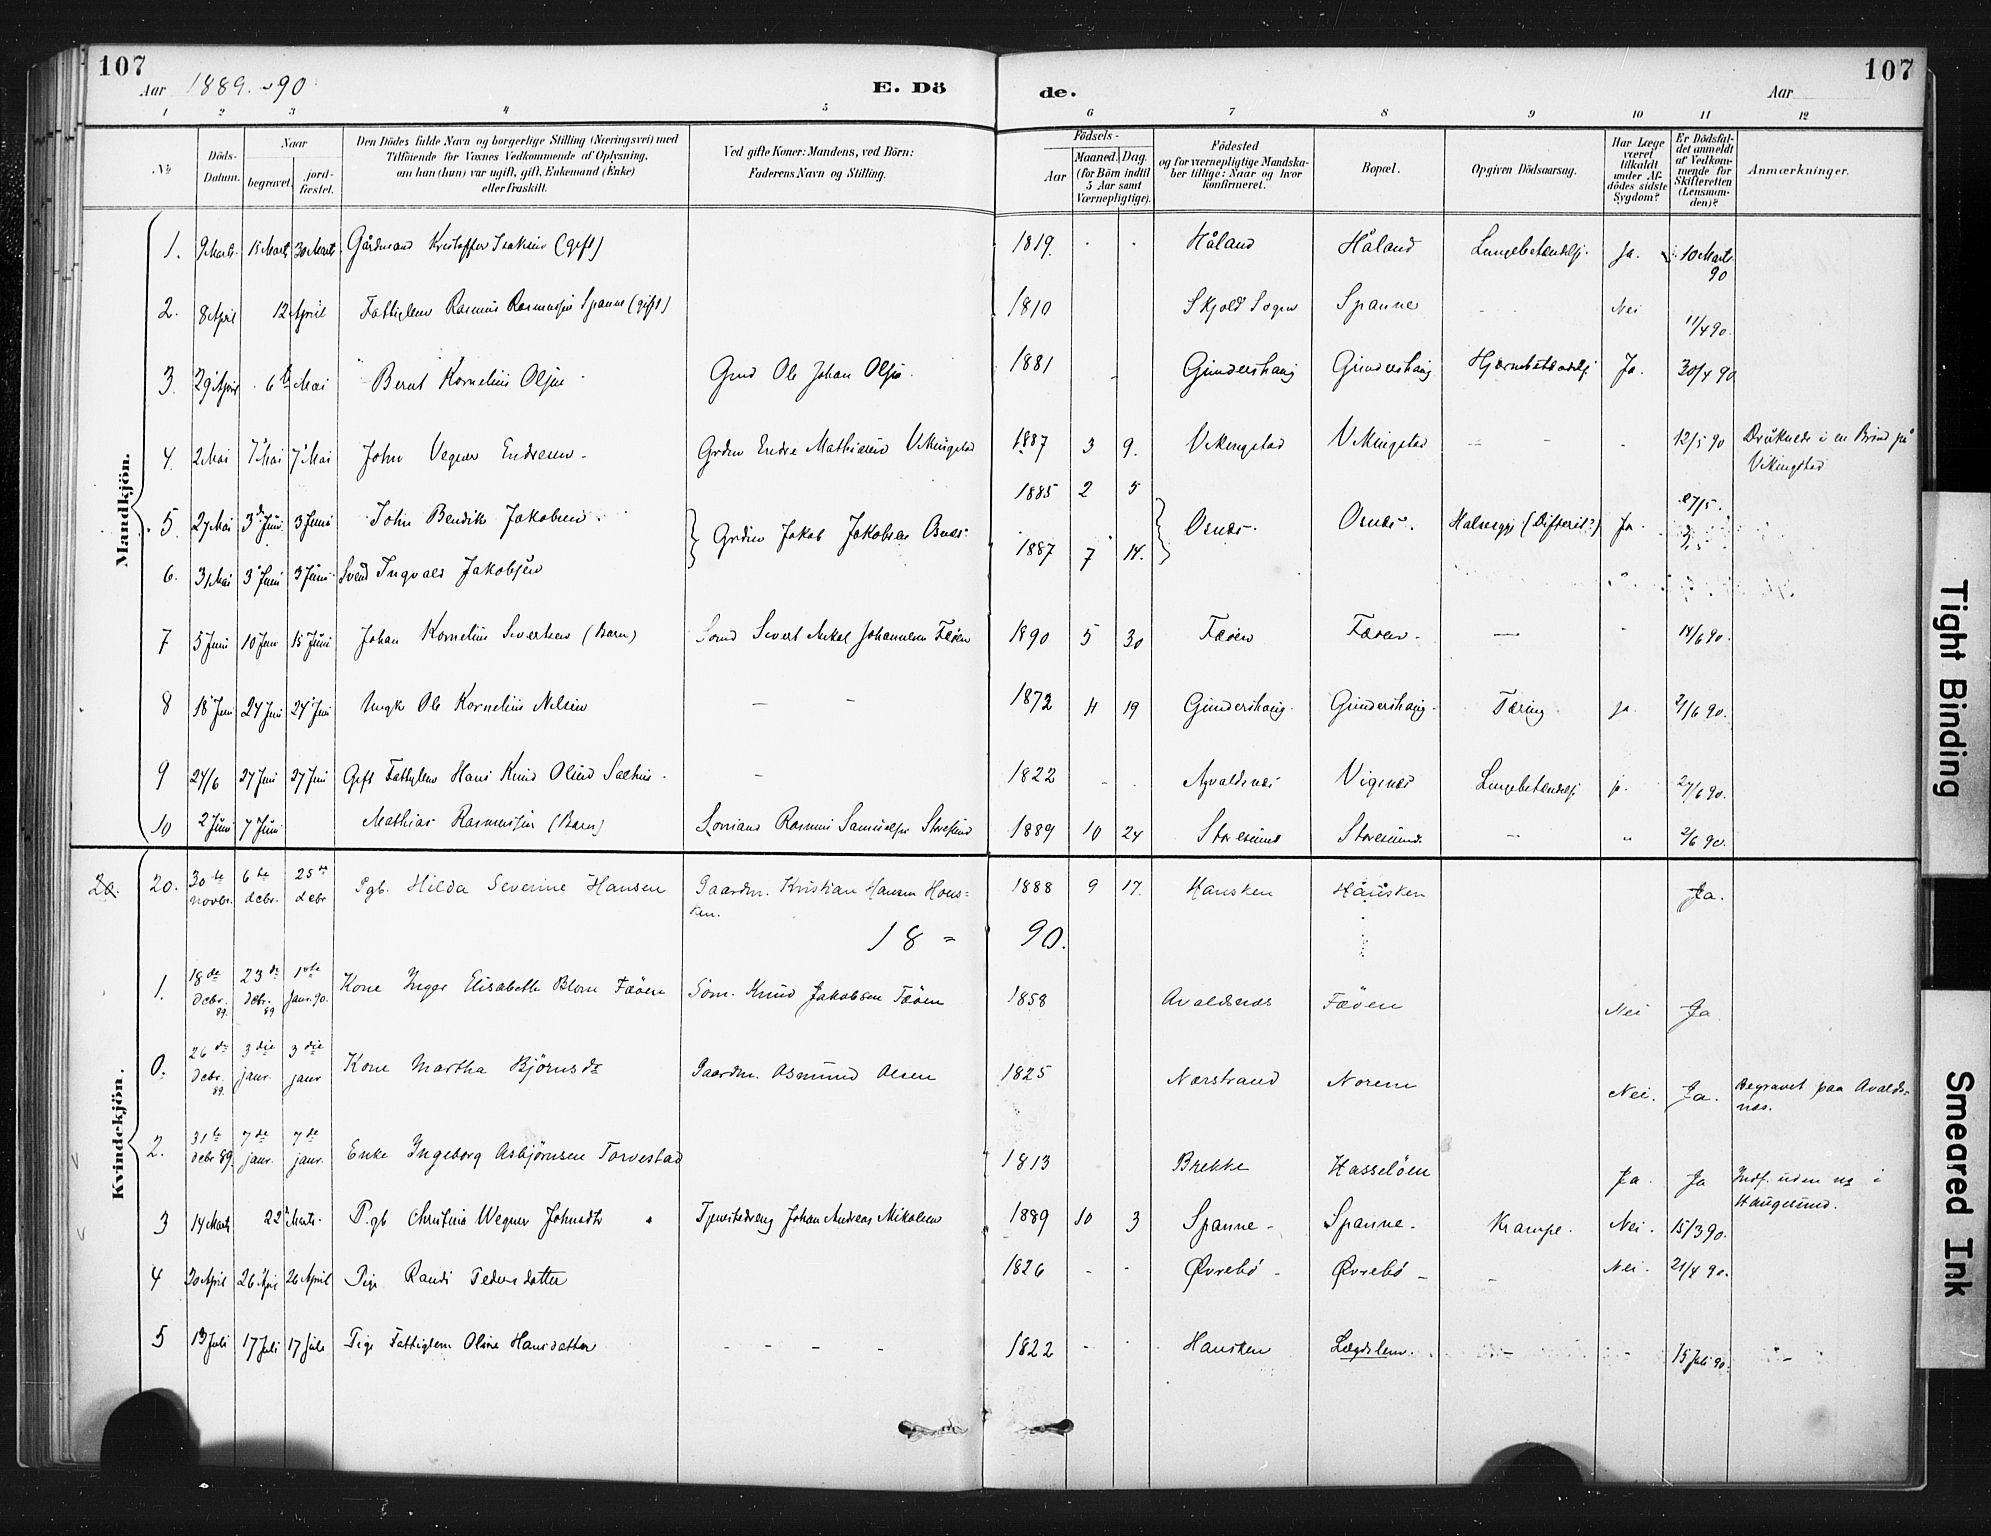 107
Aar 1889-90.
E. Dö
de.
Aar
107
1 2 3 4 5 6 7 8 9 10 11 12
No
Döds-Datum.
Naar
begravet.
jord-fæstet.
Den Dödes fulde Navn og borgerlige Stilling (Næringsvei) med
Tilföiende for Voxnes Vedkommende af Oplysning,
om han (hun) var ugift, gift, Enkemand (Enke)
eller fraskilt.
Ved gifte Koner: Mandens, ved Börn:
Faderens Navn og Stilling.
Födsels-
Aar
Maaned. Dag.
(for Börn indtil
5 Aar samt
Værnepligtige).
Födested
og for værnepligtige Mandska-
ber tillige: Naar og hvor
konfirmeret.
Bopæl.
Opgiven Dödsaarsag.
Har Læge
været
tilkaldt
under Af-
dödes sidste
Sygdom?
Er Dödsfal-
det anmeldt
af Vedkom-
mende for
Skifteretten
(Lensman-
den)?
Anmærkninger.
Mandkjön.
1. 9 Marts 15 Marts 30 Marts Gårdmand Kristoffer Isaksen (gift) 1819 Håland Håland Lungebetændelse. Ja. 10 Marts 90
2. 8 April 12 April Fattiglem Rasmus Rasmussen Spanne (gift) 1810 Skjold Sogn Spanne Nei 11/4 90.
3. 29 April 6 Mai Bernt Kornelius Olsen Grmd Ole Johan Olsen 1881 Gundershaug Gundershaug Hjernebetændelse Ja. 30/4 90
4. 2 Mai 7 Mai 7 Mai John Vegner Endresen Grdm Endre Mathiasen Vikingstad 1887 3 9. Vikingstad Vikingstad 12/5 90 Druknede i en Brønd på
Vikingstad
5. 27 Mai 3 Juni 3 Juni John Bendik Jakobsen Grdm Jakob Jakobsen Osnes 1885 2 5 Osnes Osnes Halsesyge (Difterit?) Ja 27/5.
6. 31 Mai 3 Juni 3 Juni Svend Ingvald Jakobsen 1887 7 14.
7 5 Juni 10 Juni 15 Juni Johan Kornelius Sivertsen (Barn) Sømd Sivert Nikol Johannesen Fæøen 1890 5 30 Fæøen Fæøen 14/6 90.
8 18 Juni 24 Juni 24 Juni Ungk Ole Kornelius Nilsen 1872 4 19 Gundershaug Gundershaug Tæring ja 21/6 90.
9 24/6 27 Juni 27 Juni Gift Fattiglem Hans Knud Olsen 1822 Avaldsnes Vignes Lungebetændelse ja. 27/6 90.
10 2 Juni 7 Juni Mathias Rasmussen (Barn) Sømand Rasmus Samuelsen Storesund 1889 10 24 Storesund Storesund 2/6 90.
Kvindekjön.
20. 20. 30te novbr. 6te debr. 25de debr Pgb. Hilda Severine Hansen Gaardm. Kristian Hansen Haus-
ken. 1888 9 17. Hausken Hausken Ja.
18 = 90.
1. 18de debr. 89. 23de debr. 89 1ste janr. 90. Kone Inger Elisabeth Blom Fæøen Søm. Knud Jakobsen Fæøen 1858 Avaldsnes Fæøen Nei Ja
0. 26de debr. 89. 3die janr. 3die janr Kone Martha Bjørnsdr Gaardm. Asmund Olsen 1825 Nærstrand Norem Nei. Ja. Begravet paa Avalds-
næs.
2. 31te debr 89. 7de janr. 7de janr. Enke Ingeborg Asbjørnsen Torvestad 1813 Brekke Hasseløen Ja. Ja Indf. uden no i
Haugesund.
3 14 Marts 22 Marts P.gb Christina Wegner Johnsdtr Tjenestedreng Johan Andreas Mikalsen 1889 10 3 Spanne Spanne Krampe. Nei. 15/3 90.
4 20 April 26 April 26 April Pige Randi Pedersdatter 1826 Øvrebø Øvrebø Nei. 21/4 90.
5 13 Juli 17 Juli 17 Juli Pige Fattiglem Oline Hansdatter 1822 Hausken Lægdslem. 15 Juli 90.
Tight Binding
Smeared Ink